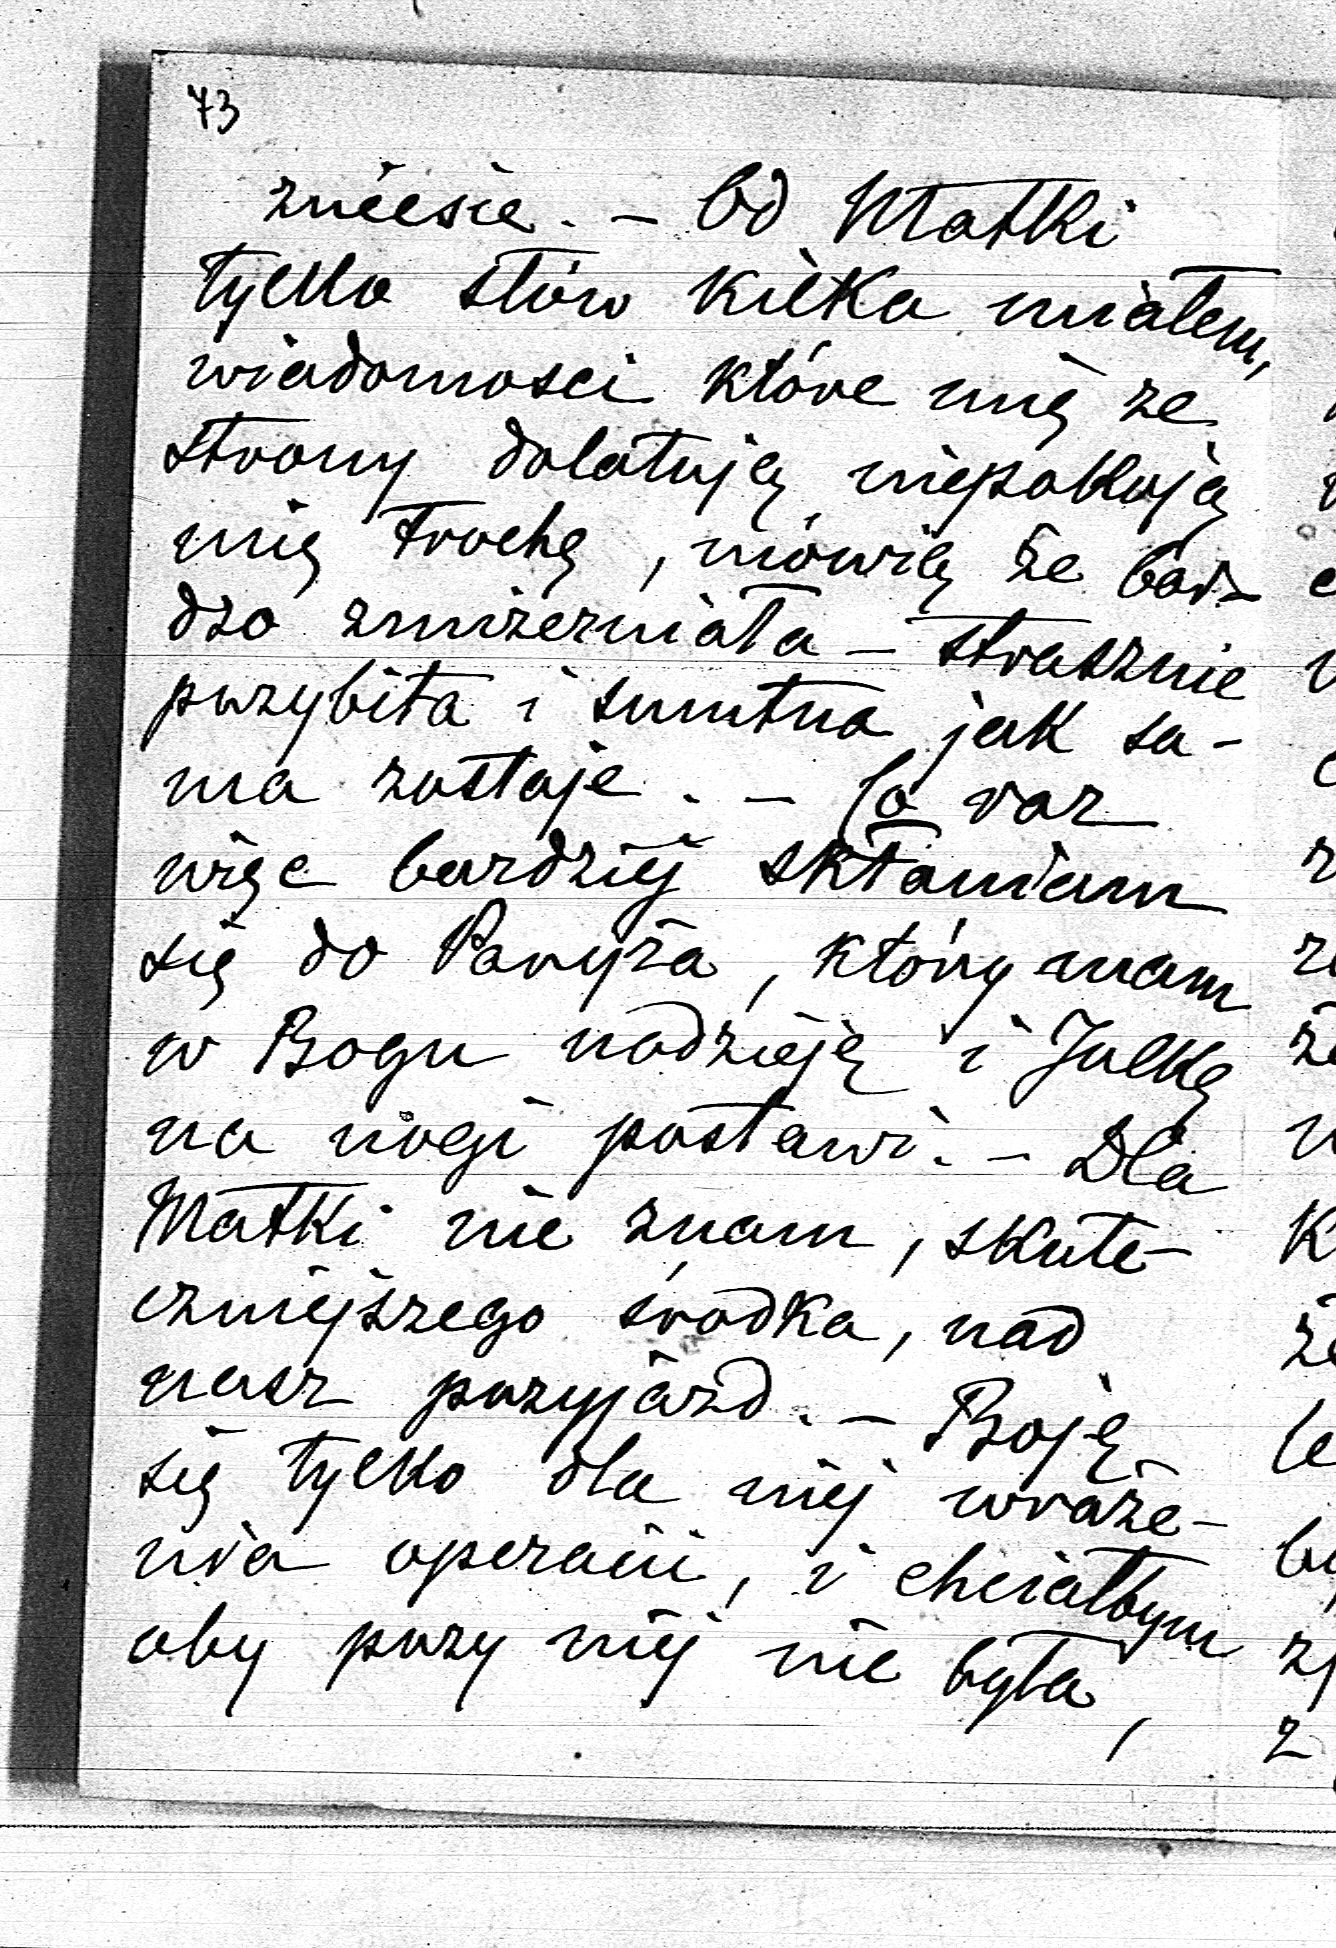 73
zniesie. – Od Matki
tylko słów kilka miałem,
wiadomości które mię ze
strony dolatują niepokoją
mię trochę, mówią że bar-
dzo zmizerniała – strasznie
przybita i smutna jak sa-
ma zostaje. – Co raz
więc bardziej skłaniam
się do Paryża, który mam
w Bogu nadzieję i Julkę
na nogi postawi. – Dla
Matki nie znam, skute-
czniejszego środka, nad
nasz przyjazd. – Boję
się tylko dla niej wraże-
nia operacii, i chciałbym
aby przy niej nie była,